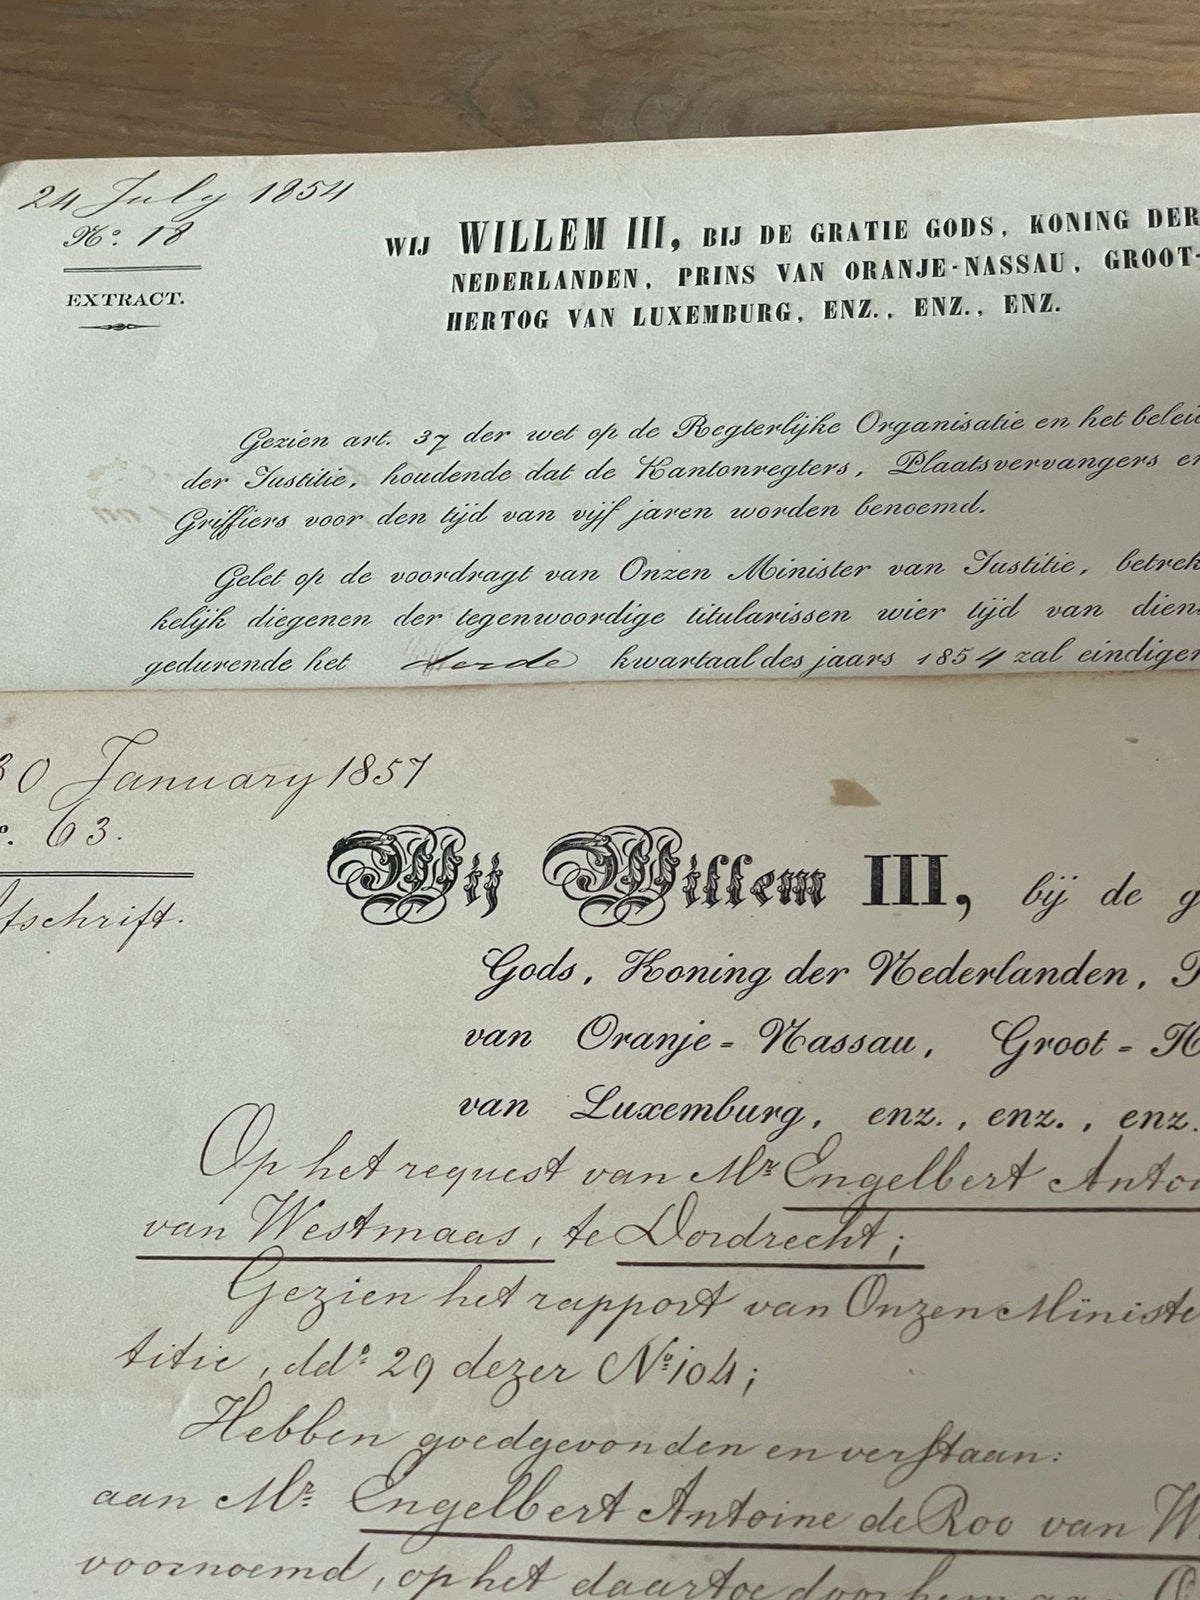 24 July 1854
No. 18
EXTRACT.
WIJ WILLEM III, BIJ DE GRATIE GODS, KONING DER
NEDERLANDEN, PRINS VAN ORANJE-NASSAU, GROOT-
HERTOG VAN LUXEMBURG, ENZ., ENZ., ENZ.
Gezien art. 37 der wet op de Regterlijke Organisatie en het beleid
der Justitie, houdende dat de Kantonregters, Plaatsvervangers en
Griffiers voor den tijd van vijf jaren worden benoemd.
Gelet op de voordragt van Onzen Minister van Justitie, betrek-
kelijk diegenen der tegenwoordige titularissen wier tijd van dienst
gedurende het derde kwartaal des jaars 1854 zal eindigen
30 January 1857
o. 63.
fschrift.
Wij Willem III, bij de g
Gods, Koning der Nederlanden, P
van Oranje-Nassau, Groot-H
van Luxemburg, enz., enz., enz.
Op het request van Mr Engelbert Antoi
van Westmaas, te Dordrecht;
Gezien het rapport van Onzen Ministe
titie, ddo 29 dezer No 104;
Hebben goedgevonden en verstaan:
aan Mr Engelbert Antoine de Roo van W
voornoemd, op het daartoe door hem aan